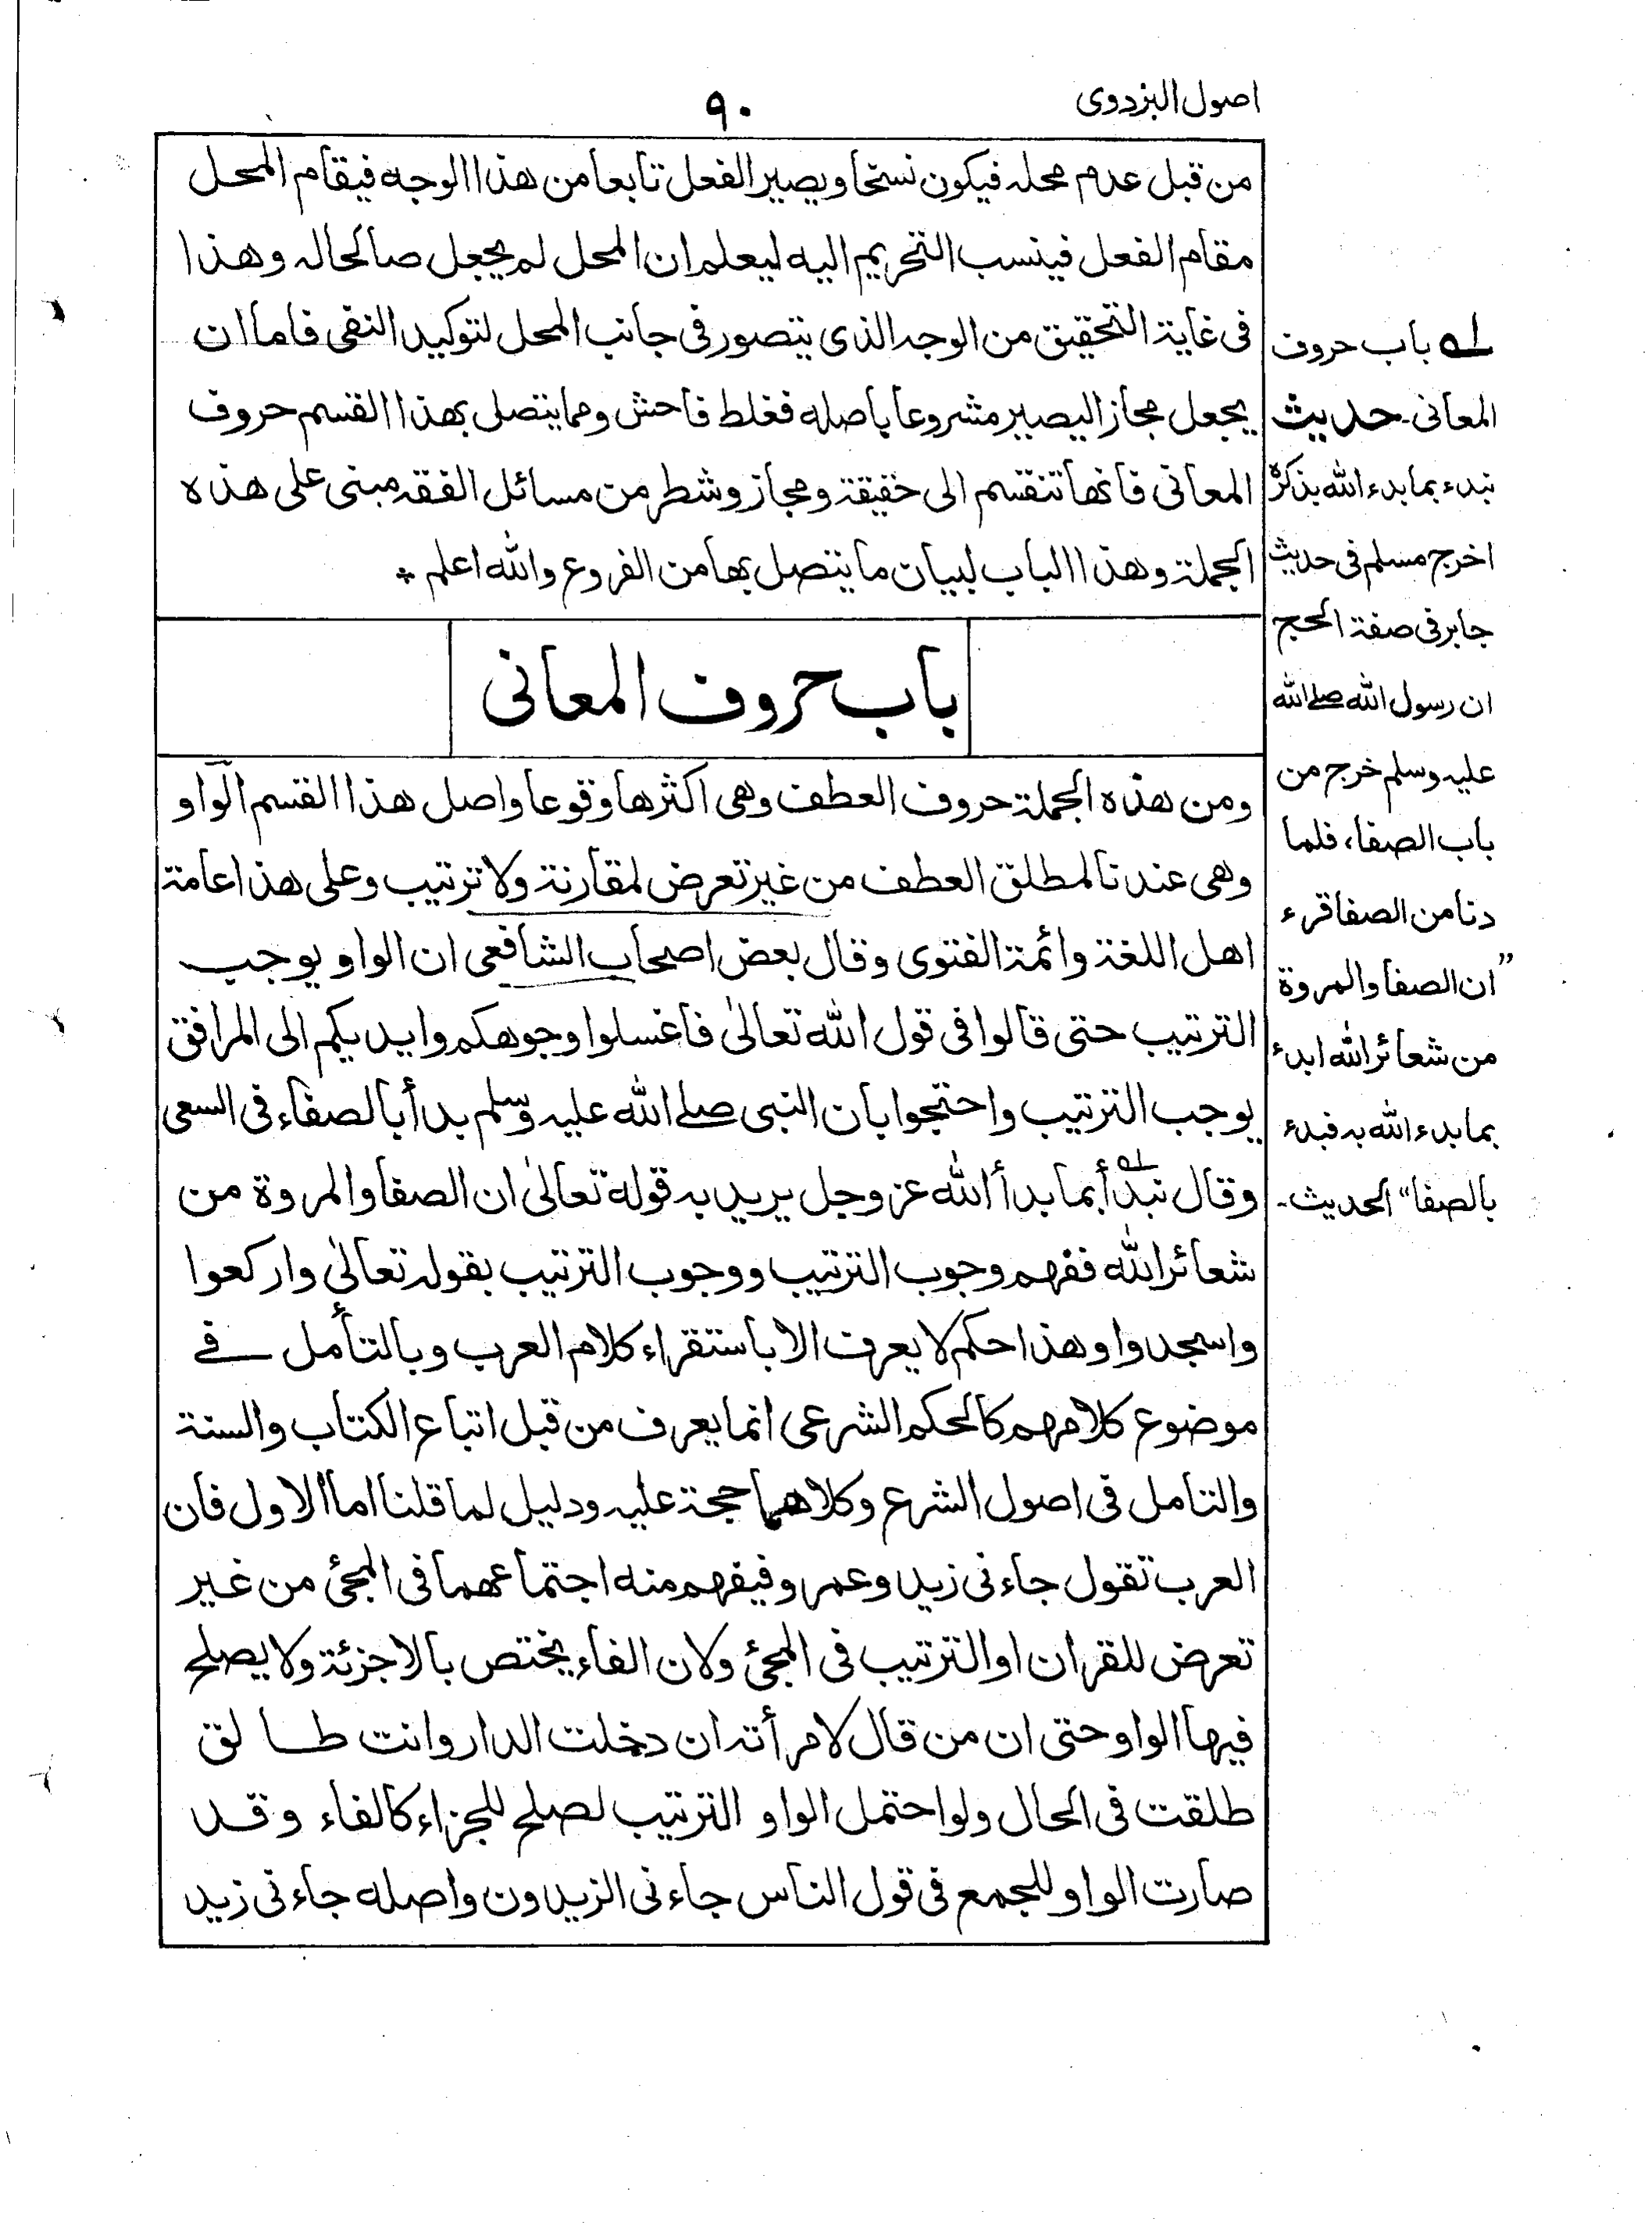 اصول البزدوی
٩٠
من قبل عدم محله فيكون نسخا ويصير الفعل تابعا من هذا الوجه فيقام المحل
مقام الفعل فينسب التحريم اليه ليعلم ان المحل لم يجعل صالحا له وهذا
فى غاية التحقيق من الوجه الذى يتصور فى جانب المحل لتوكيد النفى فاما ان
يجعل مجازا ليصير مشروعا باصله فغلط فاحش ومما يتصل بهذا القسم حروف
المعانى فانها تنقسم الى حقيقة ومجاز وشطر من مسائل الفقه مبنى على هذه
الجملة وهذا الباب لبيان ما يتصل بها من الفروع والله اعلم *
باب حروف المعانى
ومن هذه الجملة حروف العطف وهى اكثرها وقوعا واصل هذا القسم الواو
وهى عندنا لمطلق العطف من غير تعرض لمقارنة ولا ترتيب وعلى هذا عامة
اهل اللغة وائمة الفتوى وقال بعض اصحاب الشافعى ان الواو يوجب
الترتيب حتى قالوا فى قول الله تعالىٰ فاغسلوا وجوهكم وايديكم الى المرافق
يوجب الترتيب واحتجوا بان النبى صلے الله عليه وسلم بدأ بالصفاء فى السعى
وقال نبدأ بما بدأ الله عز وجل يريد به قوله تعالىٰ ان الصفا والمروة من
شعائر الله ففهم وجوب الترتيب ووجوب الترتيب بقوله تعالىٰ واركعوا
واسجدوا وهذا حكم لا يعرف الا باستقراء كلام العرب وبالتأمل فے
موضوع كلامهم كالحكم الشرعى انما يعرف من قبل اتباع الكتاب والسنة
والتامل فى اصول الشرع وكلاهما حجة عليه ودليل لما قلنا اما الاول فان
العرب تقول جاءنى زيد وعمرو فيفهم منه اجتماعهما فى المجئ من غير
تعرض للقران او الترتيب فى المجئ ولان الفاء يختص بالاجزئة ولا يصلح
فيها الواو حتى ان من قال لامرأته ان دخلت الدار وانت طالق
طلقت فى الحال ولو احتمل الواو الترتيب لصلح للجزاء كالفاء وقد
صارت الواو للجمع فى قول الناس جاءنى الزيدون واصله جاءنى زيد
له باب حروف
المعانى۔ حديث
نبدء بما بدء الله بذكره
اخرج مسلم فى حديث
جابر فى صفة الحج
ان رسول الله صلے الله
عليه وسلم خرج من
باب الصفا، فلما
دنا من الصفا قرء
”ان الصفا والمروة
من شعائر الله ابدء
بما بدء الله به فبدء
بالصفا“ الحديث۔